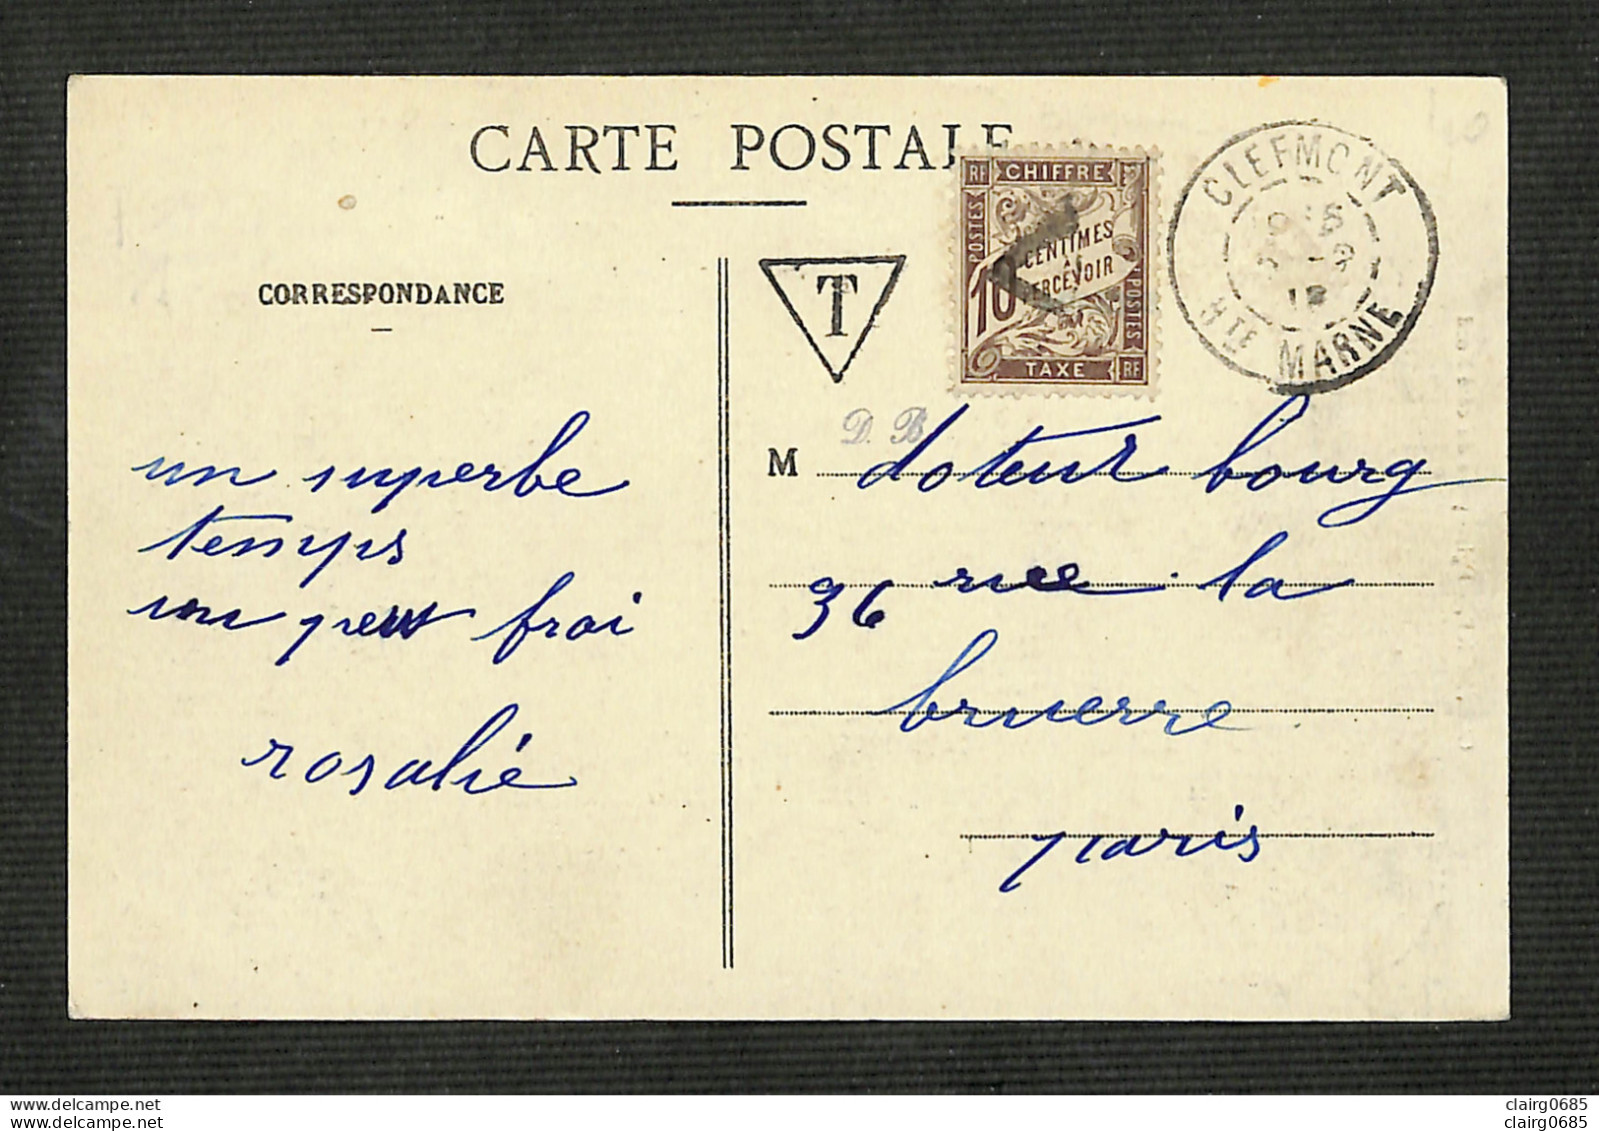 CARTE POSTALE
CORRESPONDANCE
un superbe
temps
un peu froi
rosalie
T
RF CHIFFRE
POSTES
CENTIMES
À
PERCEVOIR
10
POSTES
TAXE RF
CLEFMONT
12
HTE MARNE
D. B
M doteur bourg
36 rue la
bruerre
paris
www.delcampe.net
www.delcampe.net
clairg0685
clairg0685